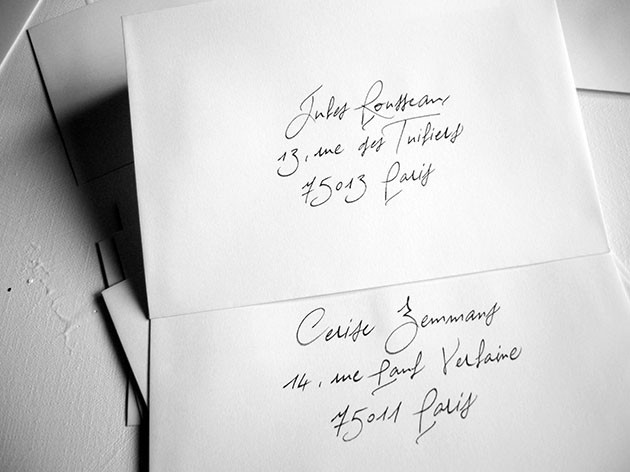 Jules Rousseau
13, rue des Tuiliers
75013 Paris
Cerise Zemmans
14, rue Paul Verlaine
75011 Paris